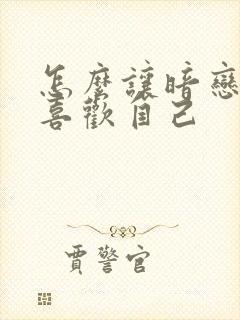 怎麼讓暗戀
喜歡自己
賈警官